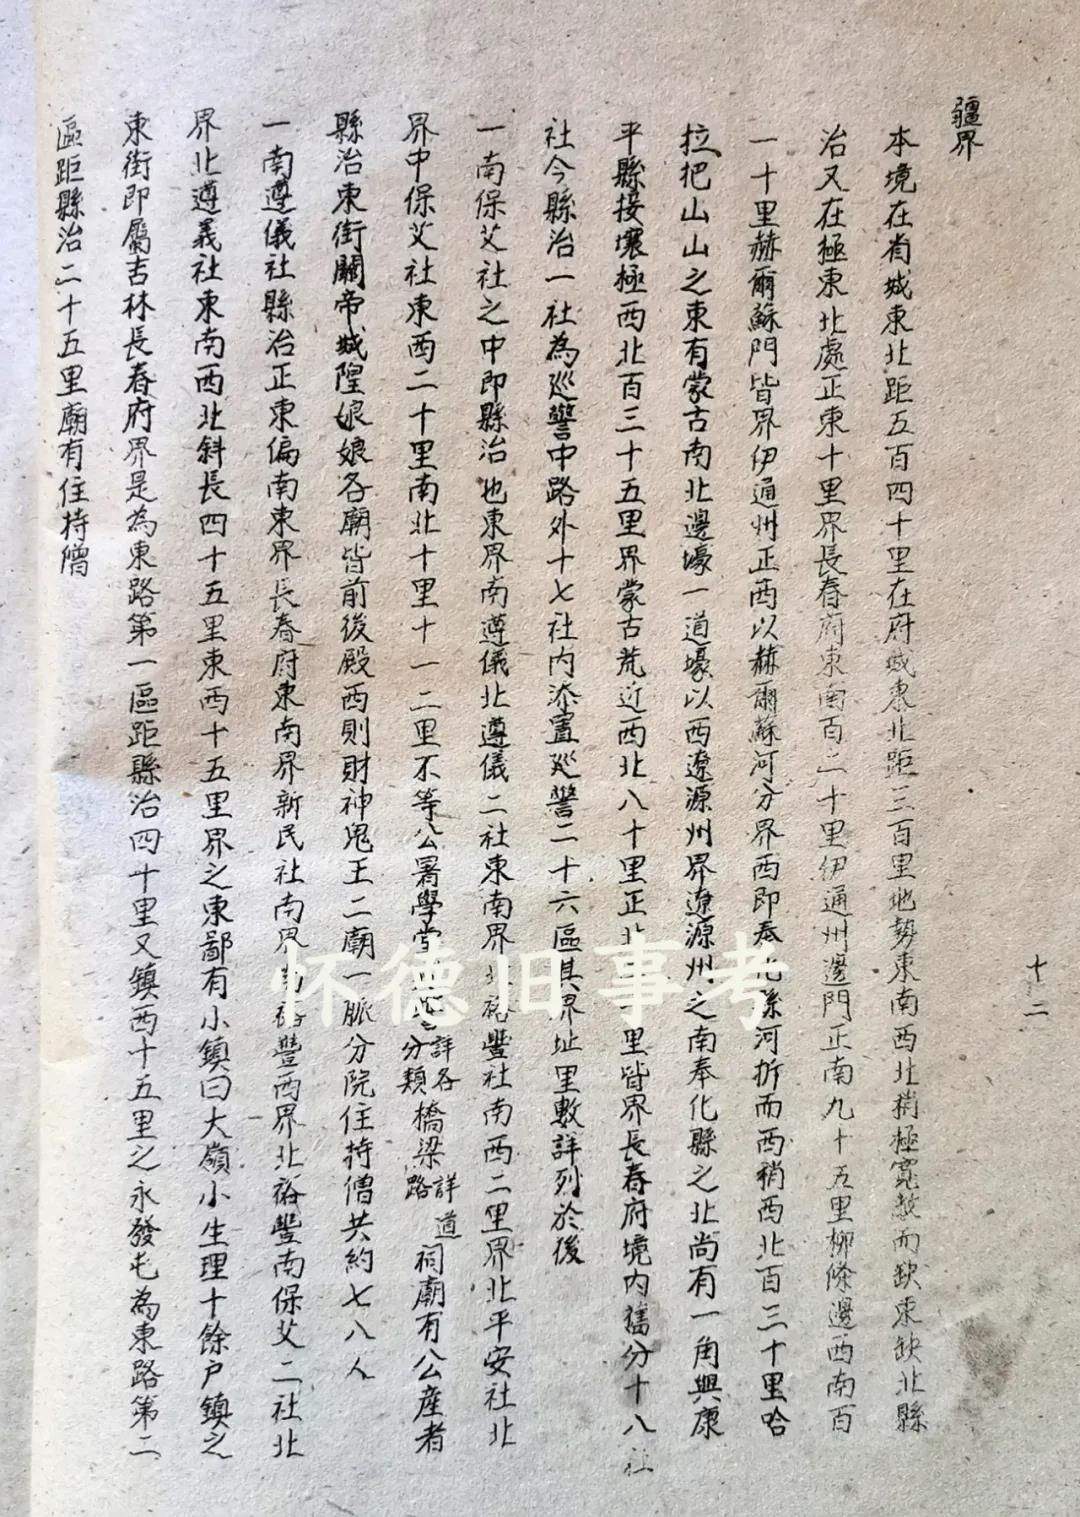 十二
疆界
本境在省城東北距五百四十里在府城東北距三百里地勢東南西北稍極寬敖而缺東缺北縣
治又在極東北處正東十里界長春府東南百二十里伊通州邊門正南九十五里柳條邊西南百
一十里赫爾蘇門皆界伊通州正西以赫爾蘇河分界西即奉化縣河折而西稍西北百三十里哈
拉把山山之東有蒙古南北邊壕一道壕以西遼源州界遼源州之南奉化縣之北尚有一角與康
平縣接壤極西北百三十五里界蒙古荒近西北八十里正北一里皆界長春府境內舊分十八社
社今縣治一社為巡警中路外十七社內添置巡警二十六區其界址里數詳列於後
一南保艾社之中即縣治也東界南遵儀北遵儀二社東南界北裕豐社南西二里界北平安社北
界中保艾社東西二十里南北十里十一二里不等公署學堂詳各分類橋梁詳道路祠廟有公產者
縣治東街關帝城隍娘娘各廟皆前後殿西則財神鬼王二廟一脈分院住持僧共約七八人
一南遵儀社縣治正東偏南東界長春府東南界新民社南界南裕豐西界北裕豐南保艾二社北
界北遵義社東南西北斜長四十五里東西十五里界之東鄙有小鎮曰大嶺小生理十餘戶鎮之
東街即屬吉林長春府界是為東路第一區距縣治四十里又鎮西十五里之永發屯為東路第二
區距縣治二十五里廟有住持僧
怀德旧事考